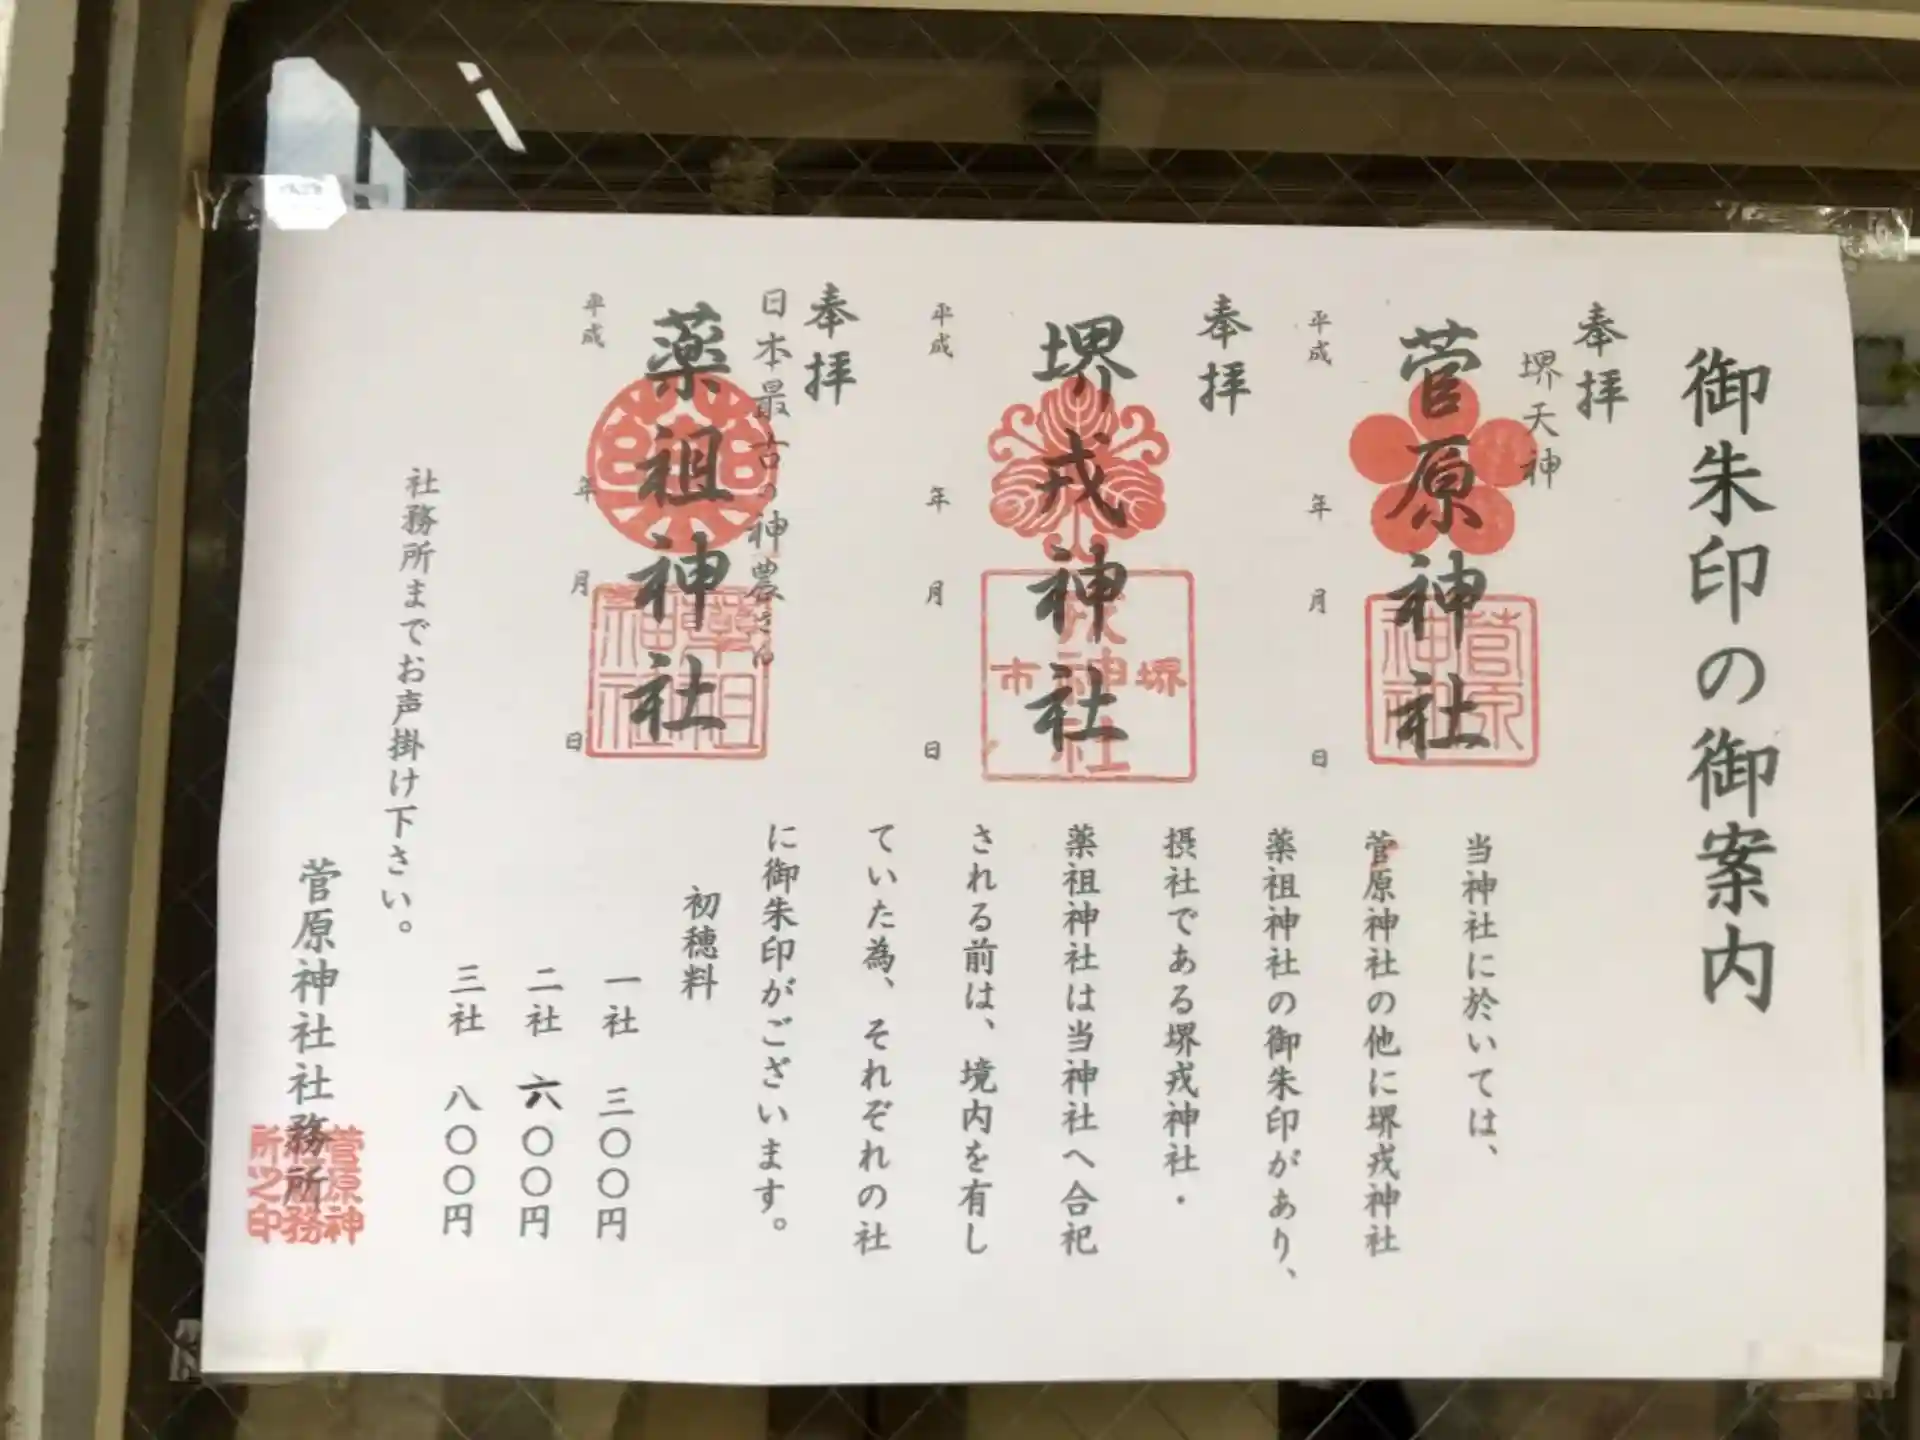 御朱印の御案内
奉拝
堺天神
菅原神社
平成 年 月 日
奉拝
堺戎神社
平成 年 月 日
奉拝
日本最古の神農さん
薬祖神社
平成 年 月 日
菅原神社
堺市
戎神社
薬祖神社
当神社に於いては、
菅原神社の他に堺戎神社
薬祖神社の御朱印があり、
摂社である堺戎神社・
薬祖神社は当神社へ合祀
される前は、境内を有し
ていた為、それぞれの社
に御朱印がございます。
初穂料
一社 三〇〇円
二社 六〇〇円
三社 八〇〇円
社務所までお声掛け下さい。
菅原神社社務所
菅原神
社社務
所之印